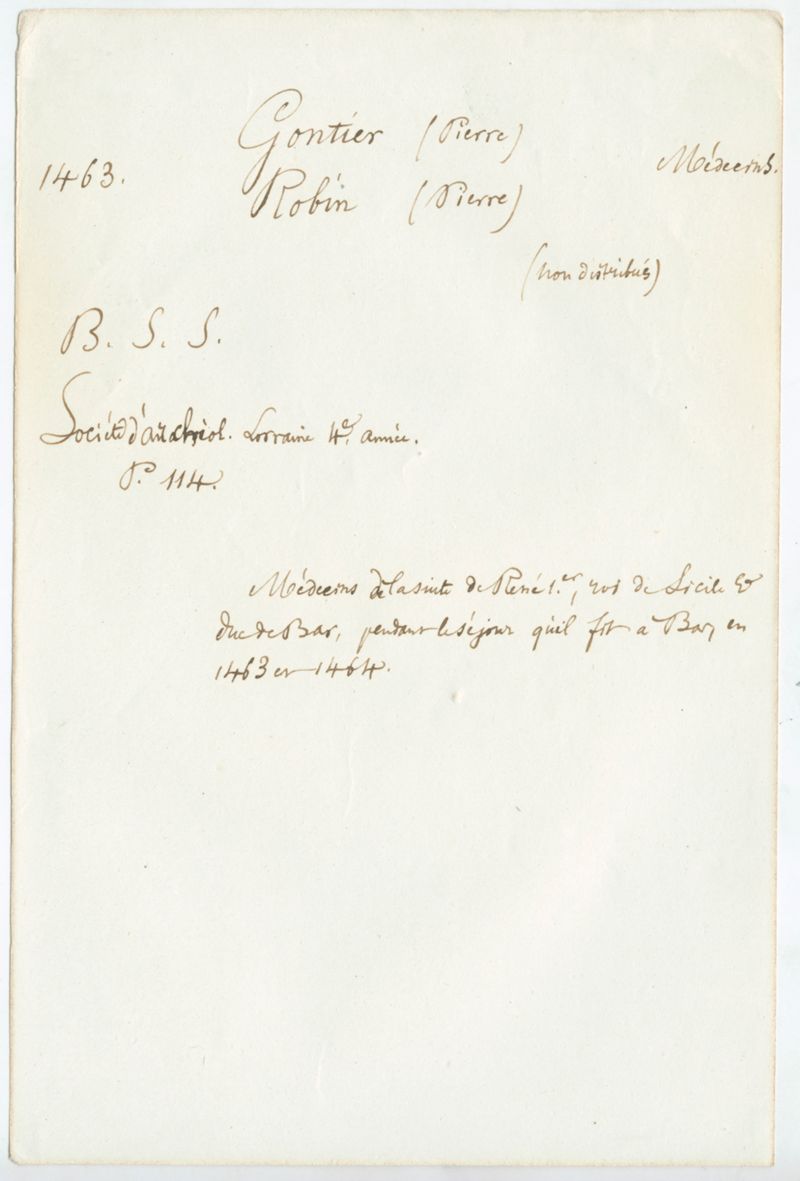 Gontier (Pierre)
1463.
Médecins.
Robin (Pierre)
(non distribués)
B. S. S.
Société d'archéol. Lorraine 4e. année.
P. 114.
Médecins de la suite de René 1.er, roi de Sicile &
duc de Bar, pendant le séjour qu'il fit à Bar, en
1463 et 1464.